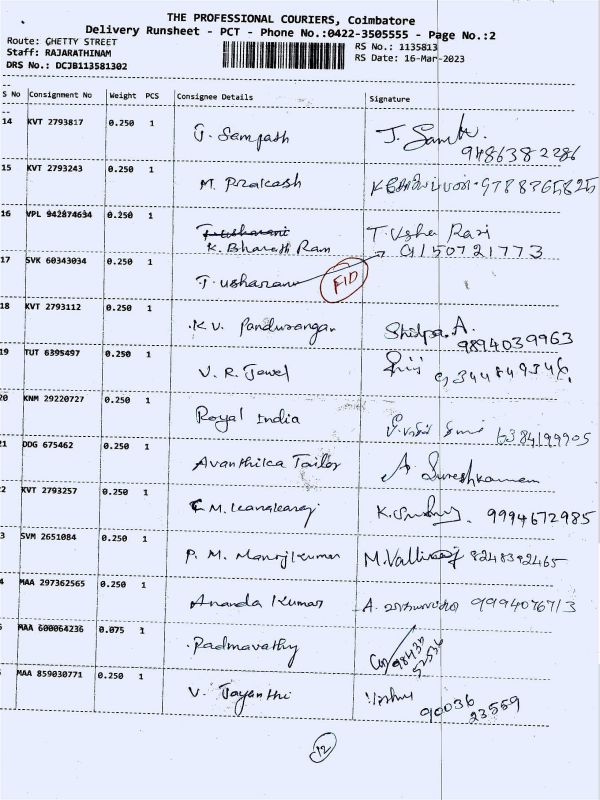 THE PROFESSIONAL COURIERS, Coimbatore
Delivery Runsheet - PCT - Phone No.:0422-3505555 - Page No.:2
Route: CHETTY STREET
Staff: RAJARATHINAM
DRS No.: DCJB113581302
RS No.: 1135813
RS Date: 16-Mar-2023
S No Consignment No Weight PCS Consignee Details Signature
14 KVT 2793817 0.250 1 J. Sampath J. Samb
9486382286
15 KVT 2793243 0.250 1 M. Prakash 9788365825
16 VPL 942874634 0.250 1 T. usharani T. Usha Rani
K. Bharath Ram 9150721773
17 SVK 60343034 0.250 1 T. usharani FID
18 KVT 2793112 0.250 1 K.V. Pandurangan Shilpa. A.
9894039963
19 TUT 6395497 0.250 1 V. R. Jewel 9344849346
20 KNM 29220727 0.250 1 Royal India 6384199905
21 DDG 675462 0.250 1 Avanthika Tailor A Sureshkumar
2 KVT 2793257 0.250 1 M. Kanakaraj 9994672985
3 SVM 2651084 0.250 1 P. M. Manojkumar M. Valli 8248392465
4 MAA 297362565 0.250 1 Ananda Kumar A. 9994076713
5 MAA 600064236 0.075 1 Padmavathy 98430
52536
MAA 859030771 0.250 1 V. Jayanthi 90036
23559
12